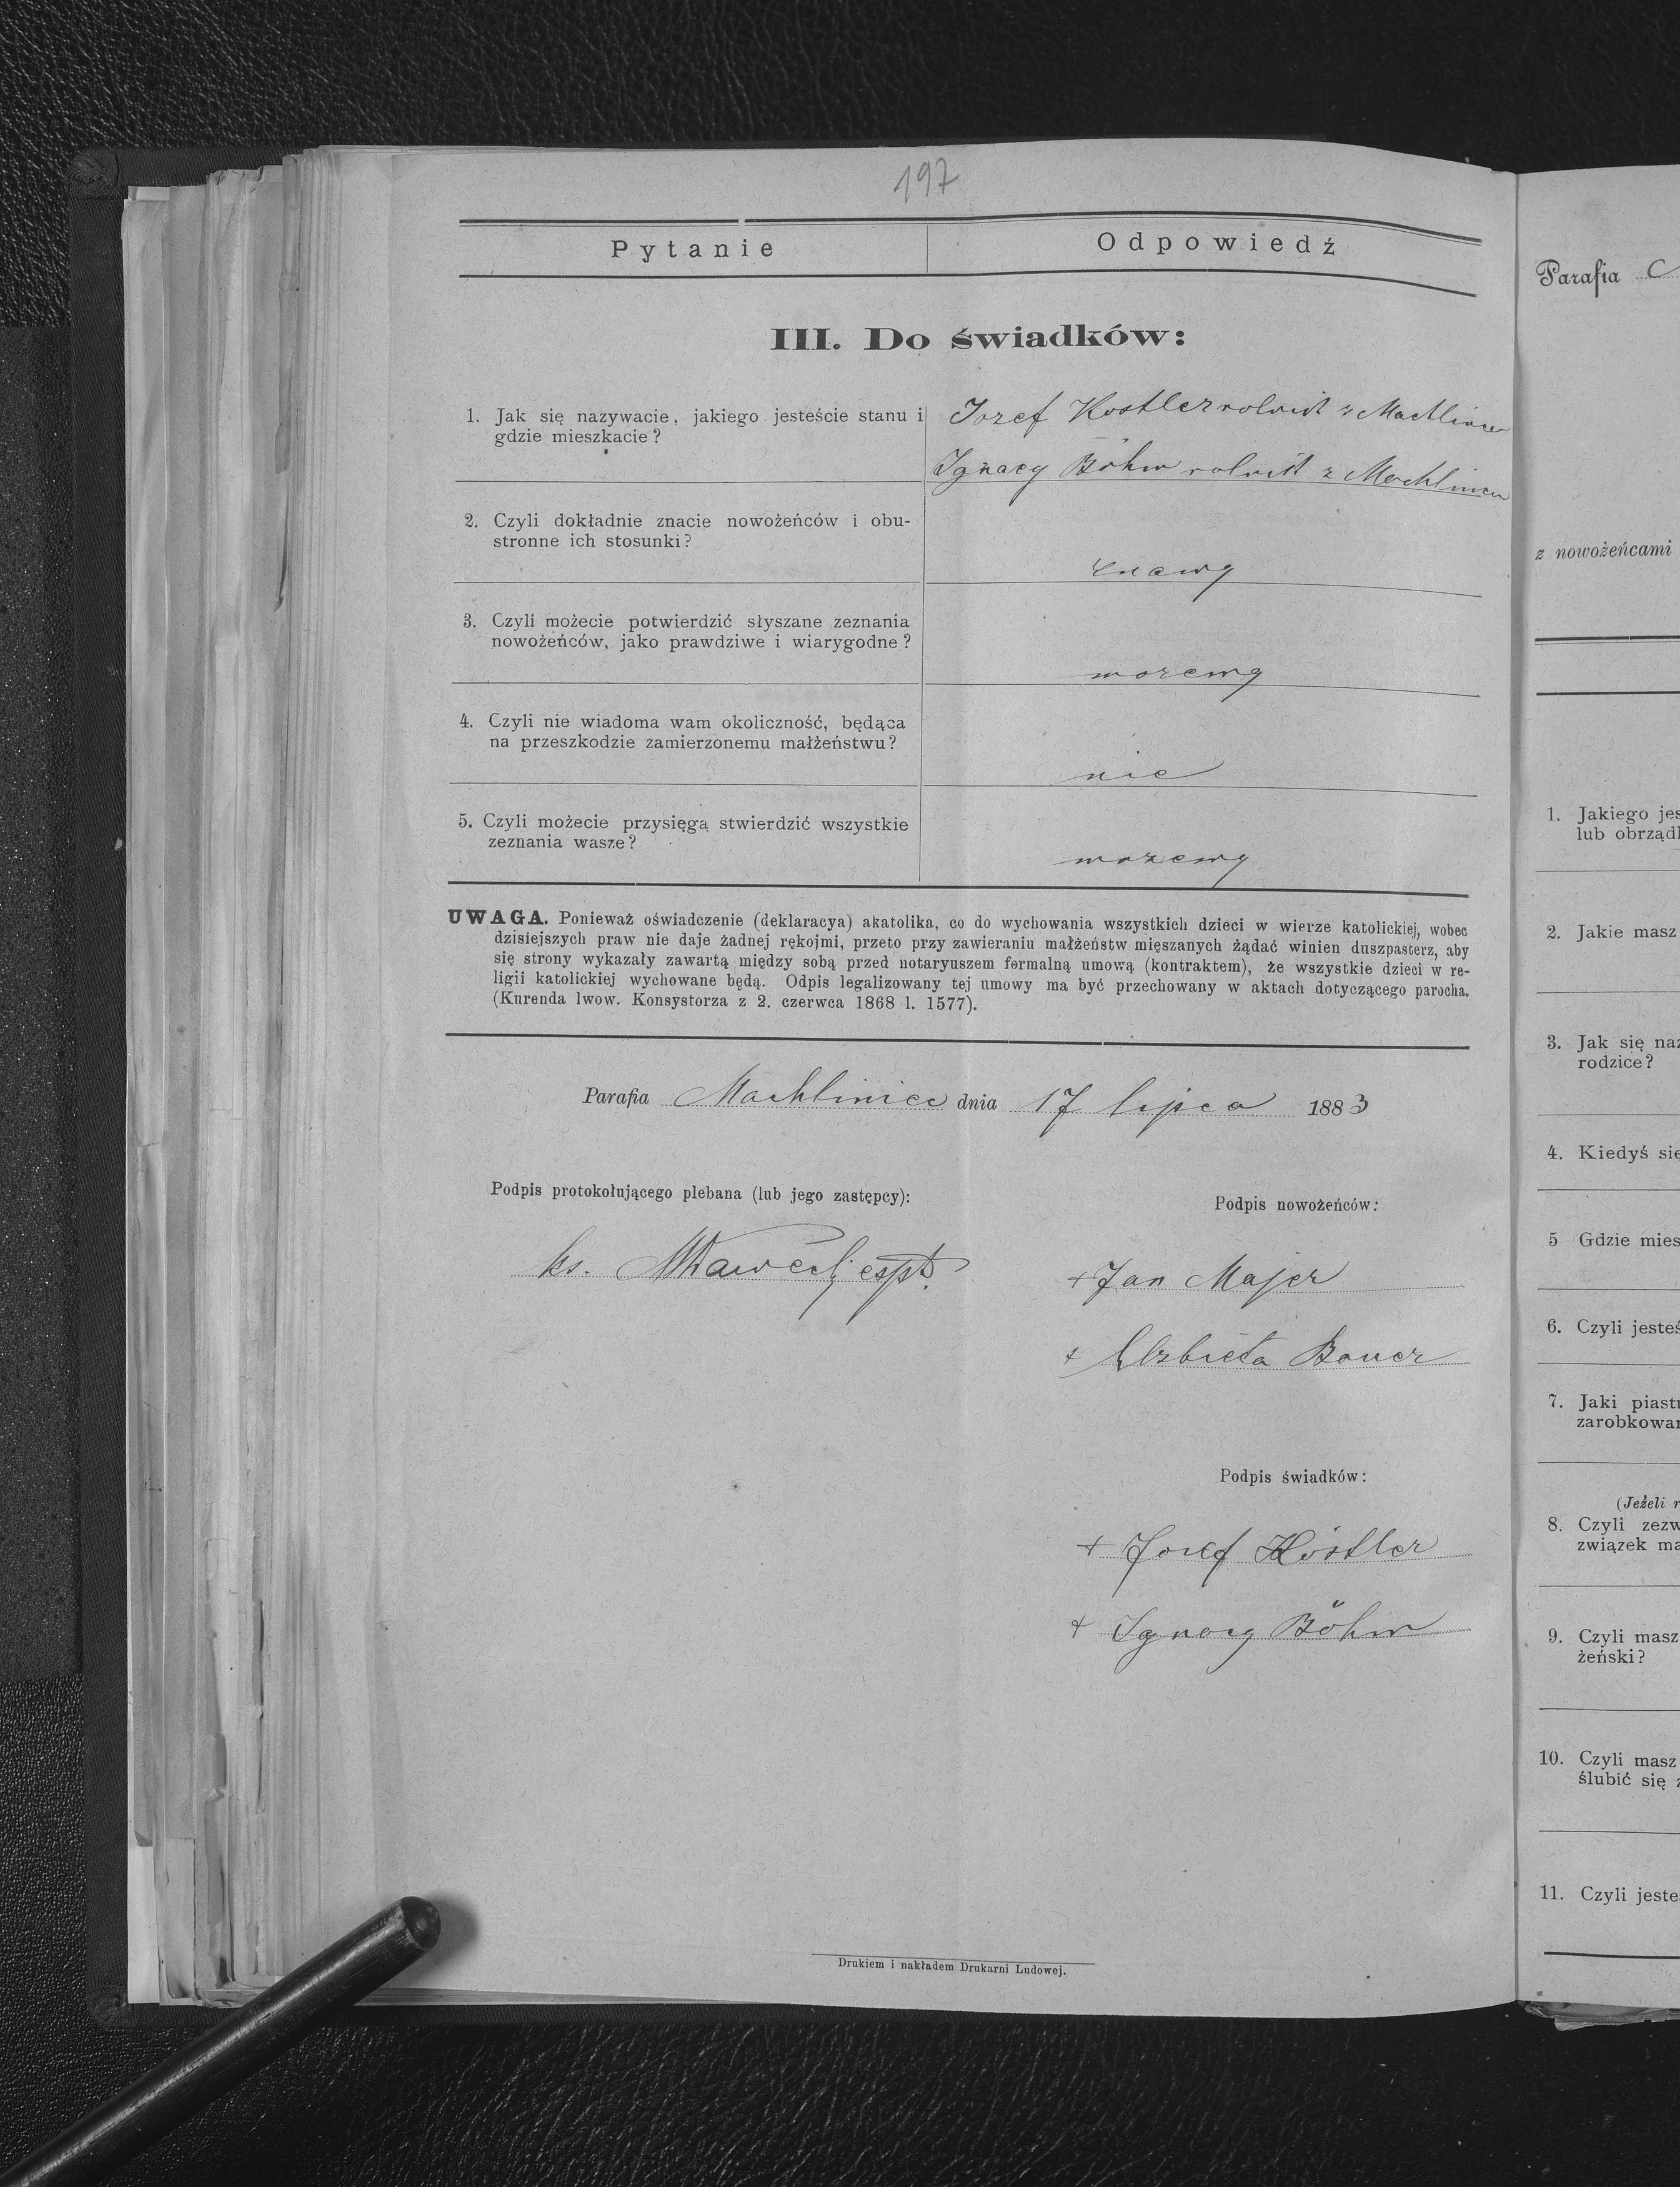 197
Pytanie Odpowiedź
III. Do świadków:
1. Jak się nazywacie, jakiego jesteście stanu i
gdzie mieszkacie?
Jozef Kostler rolnik z Machliniec
Ignacy Böhm rolnik z Machliniec
2. Czyli dokładnie znacie nowożeńców i obu-
stronne ich stosunki?
znamy
3. Czyli możecie potwierdzić słyszane zeznania
nowożeńców, jako prawdziwe i wiarygodne?
mozemy
4. Czyli nie wiadoma wam okoliczność, będąca
na przeszkodzie zamierzonemu małżeństwu?
nie
5. Czyli możecie przysięgą stwierdzić wszystkie
zeznania wasze?
mozemy
UWAGA. Ponieważ oświadczenie (deklaracya) akatolika, co do wychowania wszystkich dzieci w wierze katolickiej, wobec
dzisiejszych praw nie daje żadnej rękojmi, przeto przy zawieraniu małżeństw mięszanych żądać winien duszpasterz, aby
się strony wykazały zawartą między sobą przed notaryuszem formalną umową (kontraktem), że wszystkie dzieci w re-
ligii katolickiej wychowane będą. Odpis legalizowany tej umowy ma być przechowany w aktach dotyczącego parocha.
(Kurenda lwow. Konsystorza z 2. czerwca 1868 l. 1577).
Parafia Machliniec dnia 17 lipca 1883
Podpis protokołującego plebana (lub jego zastępcy):
ks.
Podpis nowożeńców:
+ Jan Majer
+ Elzbieta Bauer
Podpis świadków:
+ Josef Köstler
+ Ignacy Böhm
Drukiem i nakładem Drukarni Ludowej.
Parafia
z nowożeńcami
1. Jakiego jes
lub obrząd
2. Jakie masz
3. Jak się naz
rodzice?
4. Kiedyś się
5 Gdzie mies
6. Czyli jesteś
7. Jaki piast
zarobkowa
(Jeżeli
8. Czyli zezw
związek ma
9. Czyli masz
żeński?
10. Czyli masz
ślubić się z
11. Czyli jeste